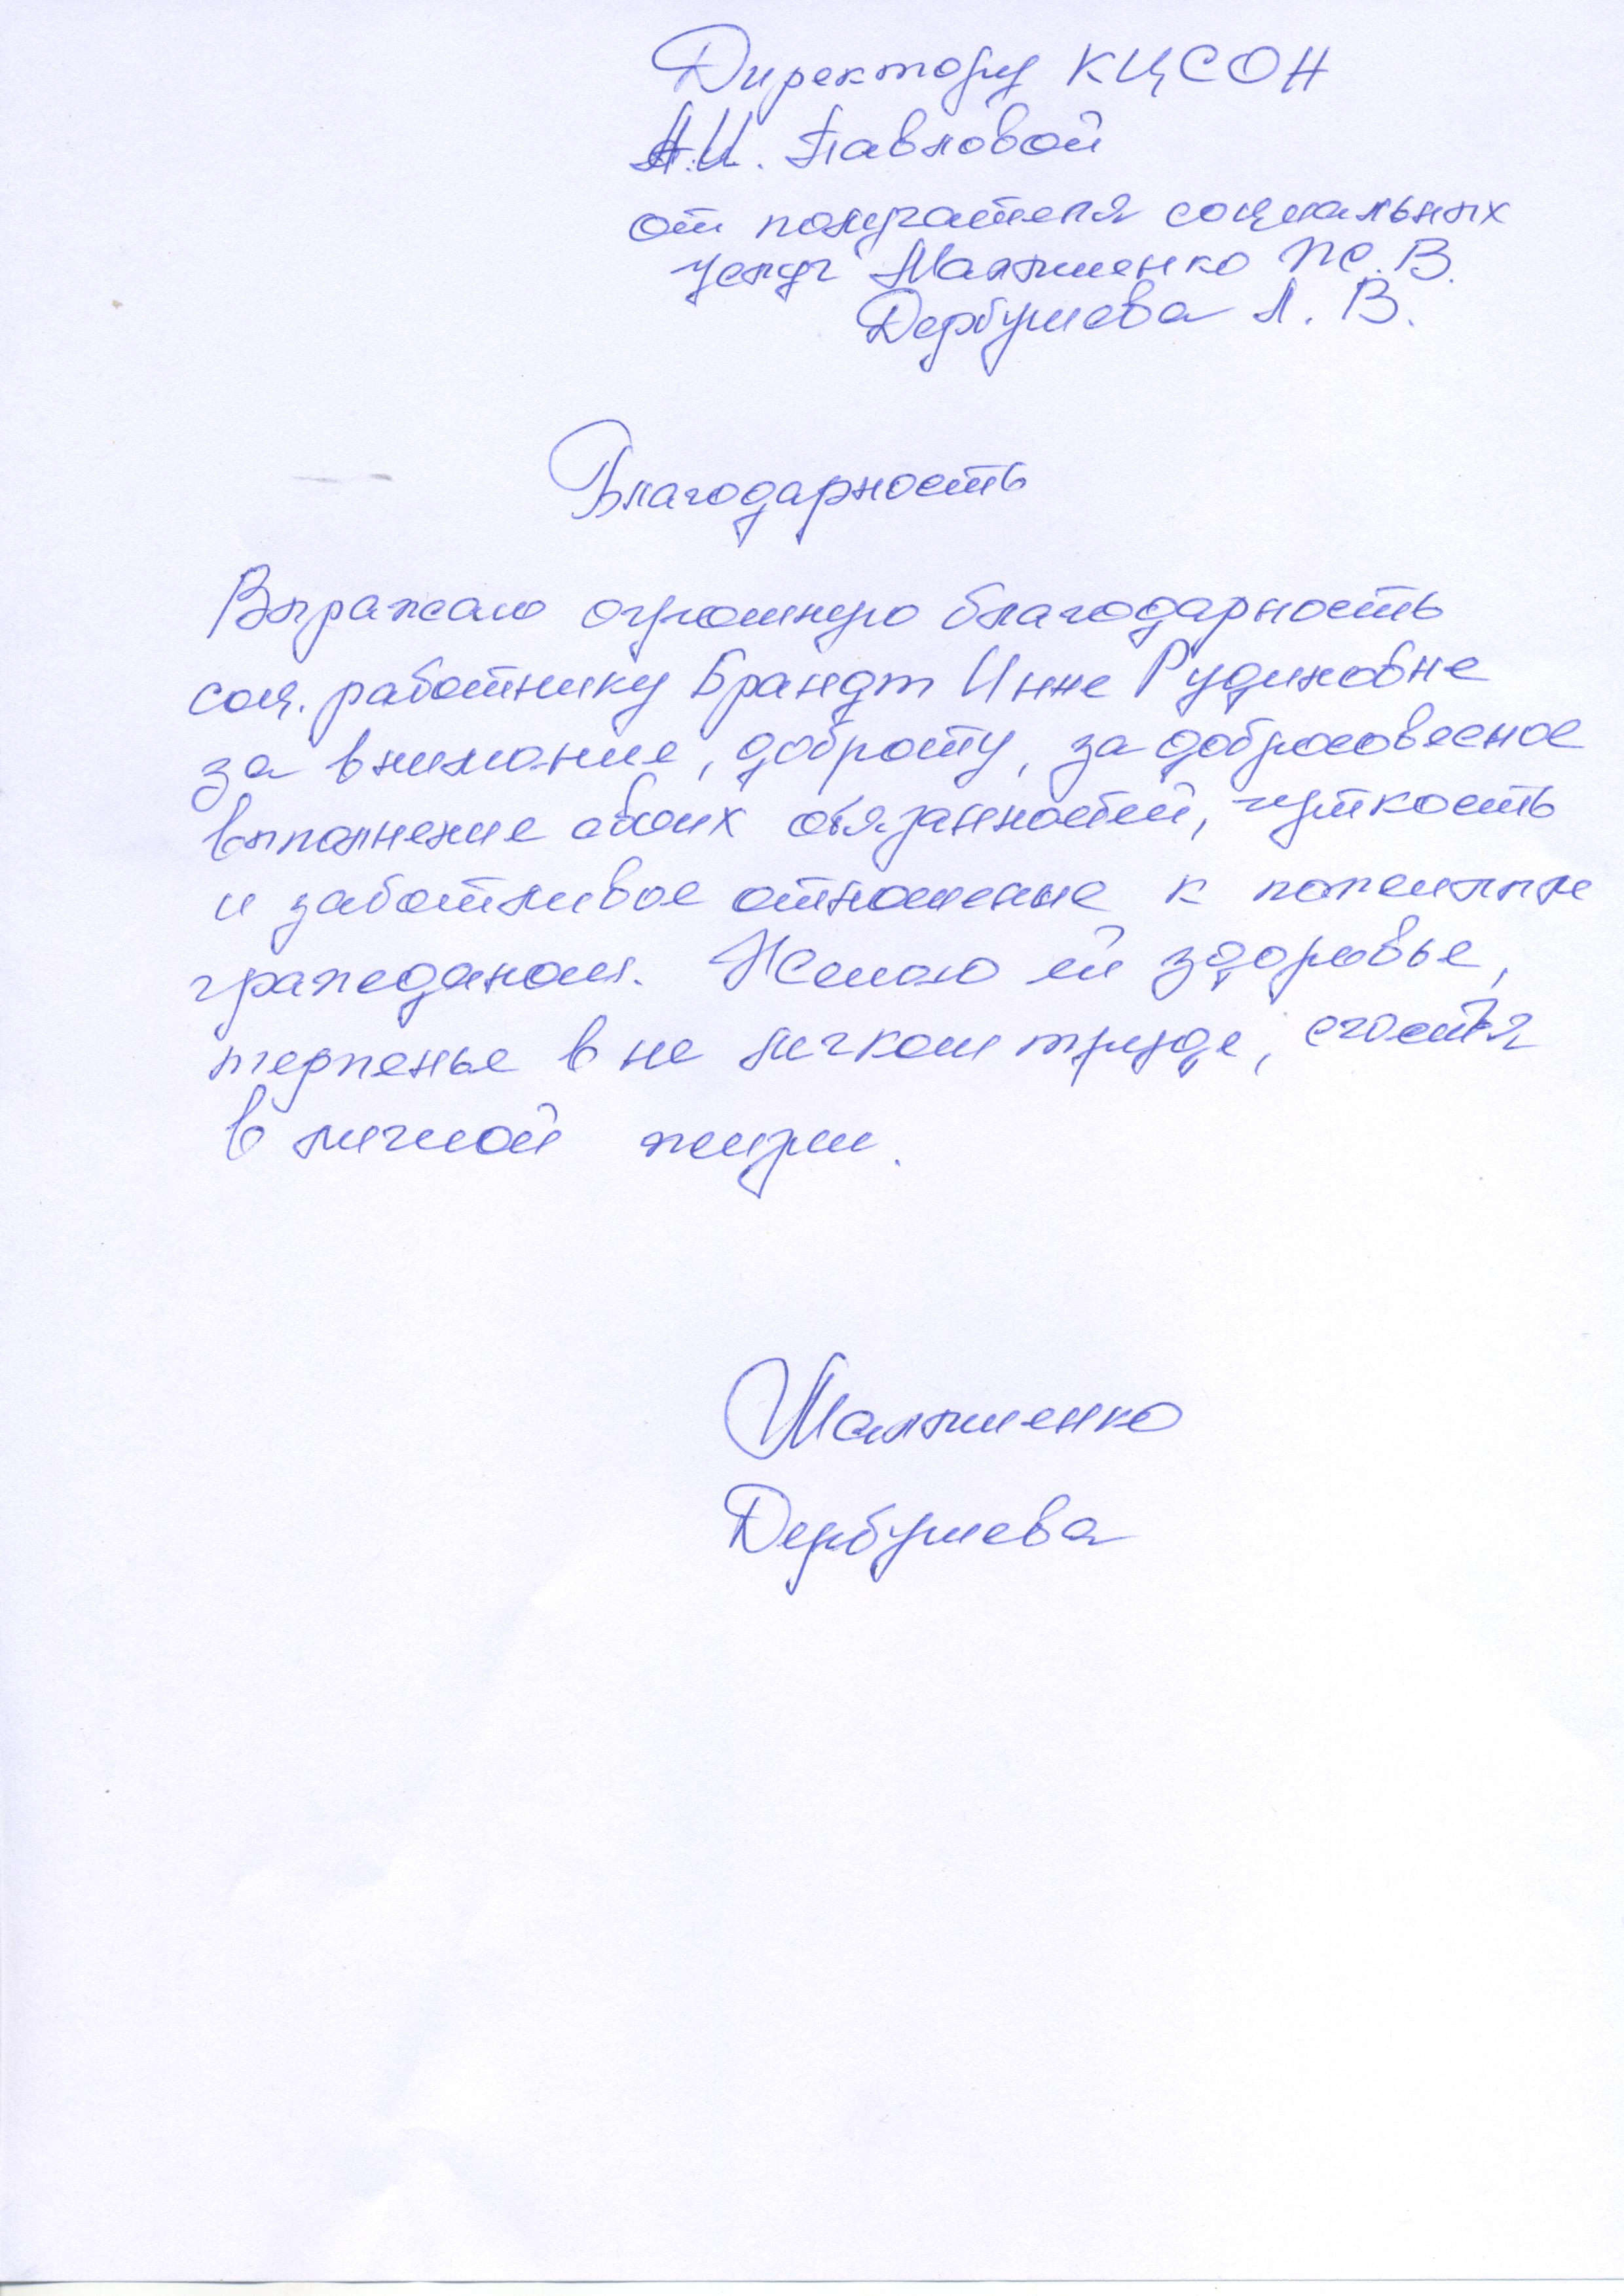 Директору КЦСОН
А.И. Павловой
от получателя социальных
услуг Малышенко Ж.В.
Дербушева Л.В.
Благодарность
Выражаю огромную благодарность
соц. работнику Брандт Инне Рудиховне
за внимание, доброту, за добросовесное
выполнение своих обязанностей, чуткость
и заботливое отношение к пожилым
гражданам. Желаю ей здоровье,
терпенье в не личком труде, счастья
в личной жизни.
Малышенко
Дербушева